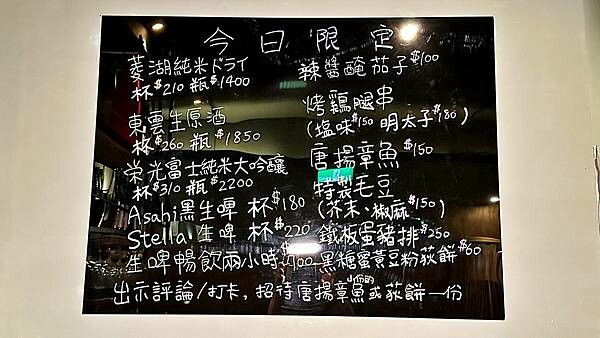 今日限定
菱湖純米ドライ
杯$210 瓶$1400
東雲生原酒
杯$260 瓶$1850
栄光富士純米大吟釀
杯$310 瓶$2200
Asahi黑生啤 杯$180
Stella 生啤 杯$220
生啤暢飲兩小時
辣醬醃茄子$100
烤鷄腿串
(塩味$150 明太子$180)
唐揚章魚$150
特製毛豆
(芥末、椒麻$150)
鐵板蛋豬排$250
黑糖蜜黃豆粉荻餅$60
出示評論/打卡,招待唐揚章魚或荻餅一份